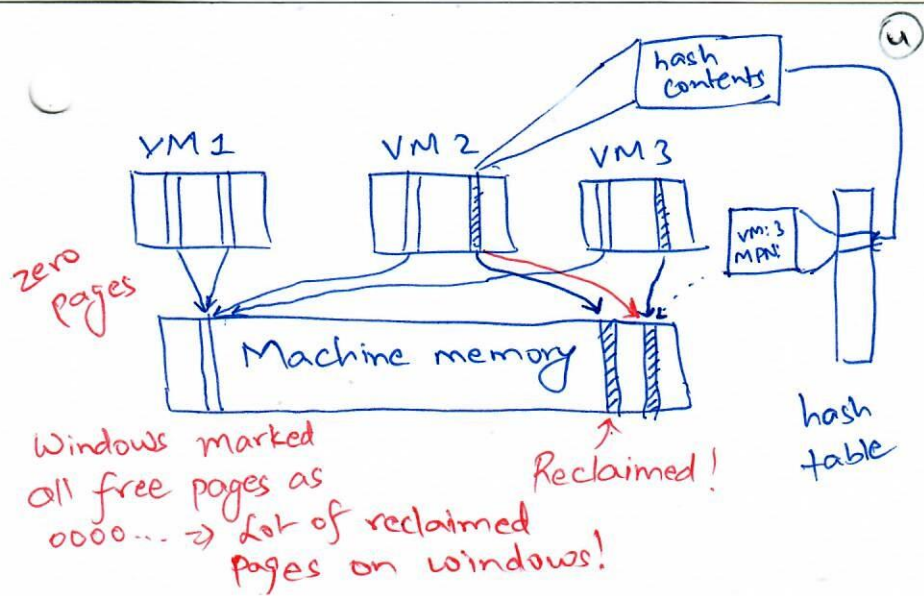 4
hash
contents
VM 1
VM 2
VM 3
VM: 3
MPN:
zero
pages
Machine memory
hash
table
Reclaimed!
Windows marked
all free pages as
0000... => Lot of reclaimed
pages on windows!